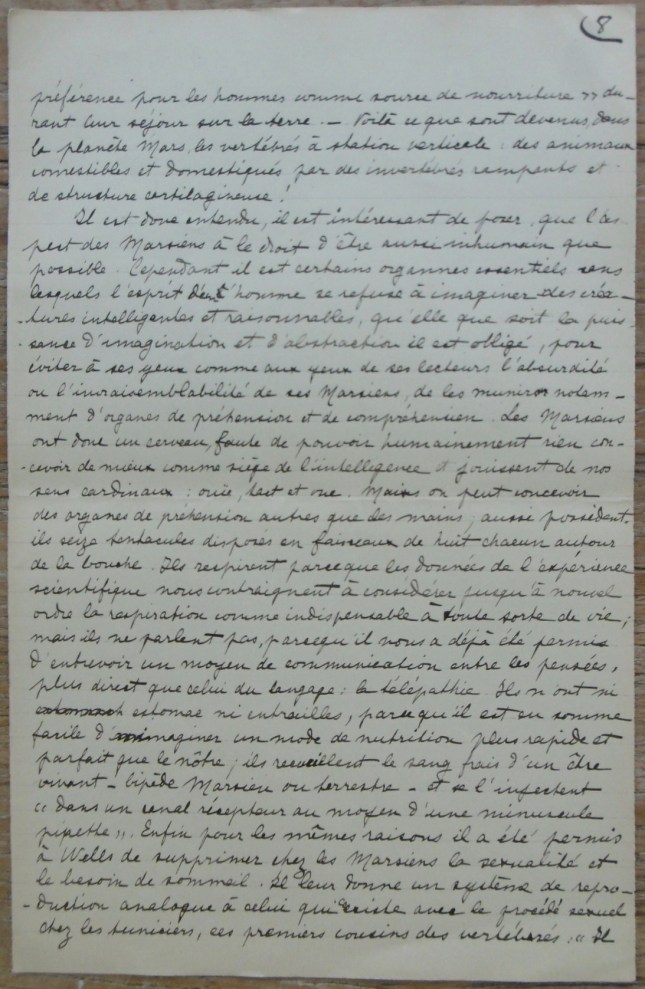 8
préférence pour les hommes comme source de nourriture » du-
rant leur séjour sur la terre. — Voilà ce que sont devenus, dans
la planète Mars, les vertébrés à station verticale : des animaux
comestibles et domestiqués par des invertébrés rampants et
de structure cartilagineuse !
Il est donc entendu, il est intéressant de poser, que l'as-
pect des Marsiens à le droit d'être aussi inhumain que
possible. Cependant il est certains organnes essentiels sans
lesquels l'esprit d'un homme se refuse à imaginer des créa-
tures intelligentes et raisonnables, qu'elle que soit la puis-
sance d'imagination et d'abstraction il est obligé, pour
éviter à ses yeux comme aux yeux de ses lecteurs l'absurdité
ou l'invraisemblabilité de ses Marsiens, de les munir notam-
ment d'organes de préhension et de compréhension. Les Marsiens
ont donc un cerveau, faute de pouvoir humainement rien con-
cevoir de mieux comme siège de l'intelligence et jouissent de nos
sens cardinaux : ouïe, tact et vue. Mais on peut concevoir
des organes de préhension autres que des mains, aussi possèdent-
ils seize tentacules disposés en faisceaux de huit chacun autour
de la bouche. Ils respirent parce que les données de l'expérience
scientifique nous contraignent à considérer jusqu'à nouvel
ordre la respiration comme indispensable à toute sorte de vie ;
mais ils ne parlent pas, parcequ'il nous a déjà été permis
d'entrevoir un moyen de communication entre les pensées,
plus direct que celui du langage : la télépathie. Ils n'ont ni
estomac ni entrailles, parce qu'il est en somme
facile d'imaginer un mode de nutrition plus rapide et
parfait que le nôtre ; ils recueillent le sang frais d'un être
vivant – bipède Marsien ou terrestre – et se l'injectent
« dans un canal récepteur au moyen d'une minuscule
pipette ». Enfin pour les mêmes raisons il a été permis
à Wells de supprimer chez les Marsiens la sexualité et
le besoin de sommeil. Il leur donne un système de repro-
duction analogue à celui qui existe avec le procédé sexuel
chez les tuniciers, ces premiers cousins des vertébrés : « Il